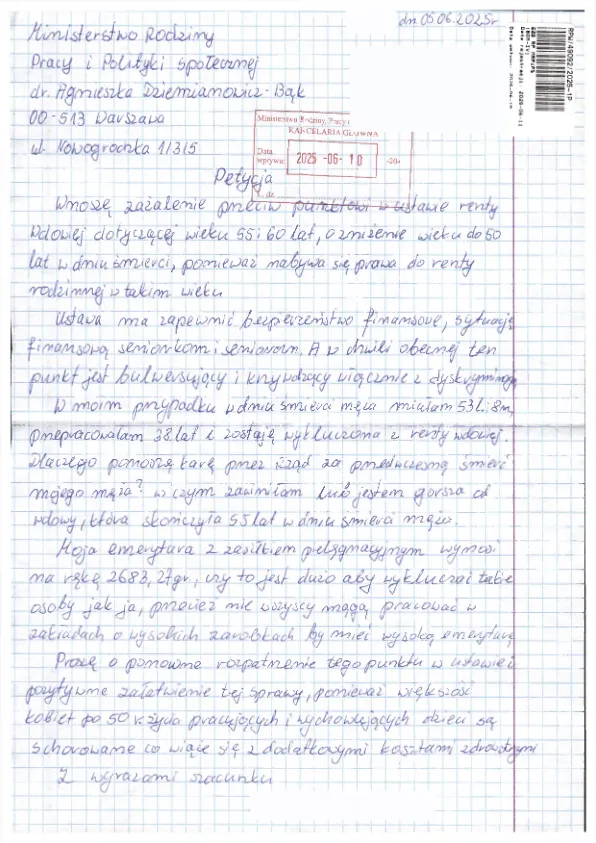 dn 05.06.2025r
RPW/49092/2025-1P
Data rejestracji: 2025-06-11
Data wpływu: 2025-06-10
Ministerstwo Rodziny
Pracy i Polityki społecznej
dr. Agnieszka Dziemianowicz-Bąk
00-513 Warszawa
ul. Nowogrodzka 1/3/5
Ministerstwo Rodziny, Pracy i
KANCELARIA GŁÓWNA
Data
wpływu: 2025 -06- 10 -20-
Petycja
Wnoszę zażalenie przeciw punktowi w ustawie renty
wdowiej dotyczącej wieku 55 i 60 lat, o zniżenie wieku do 50
lat w dniu śmierci, ponieważ nabywa się prawa do renty
rodzinnej w takim wieku
Ustawa ma zapewnić bezpieczeństwo finansowe, sytuację
finansową seniorkom i seniorom. A w chwili obecnej ten
punkt jest bulwersujący i krzywdzący włącznie z
W moim przypadku w dniu śmierci męża miałam 53 l. i 8 m,
przepracowałam 38 lat i zostaję wykluczona z renty wdowiej.
Dlaczego ponoszę karę przez rząd za przedwczesną śmierć
mojego męża? w czym zawiniłam lub jestem gorsza od
wdowy, która skończyła 55 lat w dniu śmierci męża.
Moja emerytura z zasiłkiem pielęgnacyjnym wynosi
na rękę 2683,27gr, czy to jest dużo aby wykluczać takie
osoby jak ja, przecież nie wszyscy mogą pracować w
zakładach o wysokich zarobkach by mieć wysoką emeryturę
Proszę o ponowne rozpatrzenie tego punktu w ustawie i
pozytywne załatwienie tej sprawy, ponieważ większość
kobiet po 50 r. życia pracujących i wychowujących dzieci są
schorowane co wiąże się z dodatkowymi kosztami zdrowotnymi
Z wyrazami szacunku